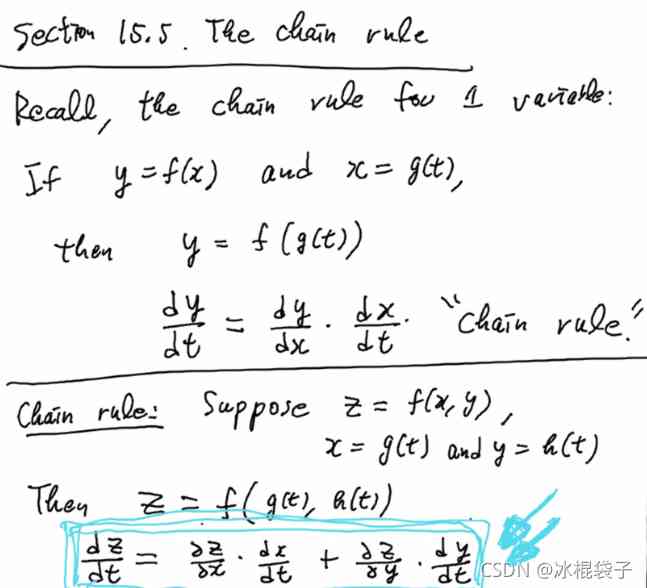 Section 15.5. The chain rule
Recall, the chain rule for 1 variable:
If y = f(x) and x = g(t),
then y = f(g(t))
dy/dt = dy/dx · dx/dt. "Chain rule."
Chain rule: Suppose z = f(x,y),
x = g(t) and y = h(t)
Then z = f(g(t), h(t))
dz/dt = ∂z/∂x · dx/dt + ∂z/∂y · dy/dt
CSDN @冰棍袋子